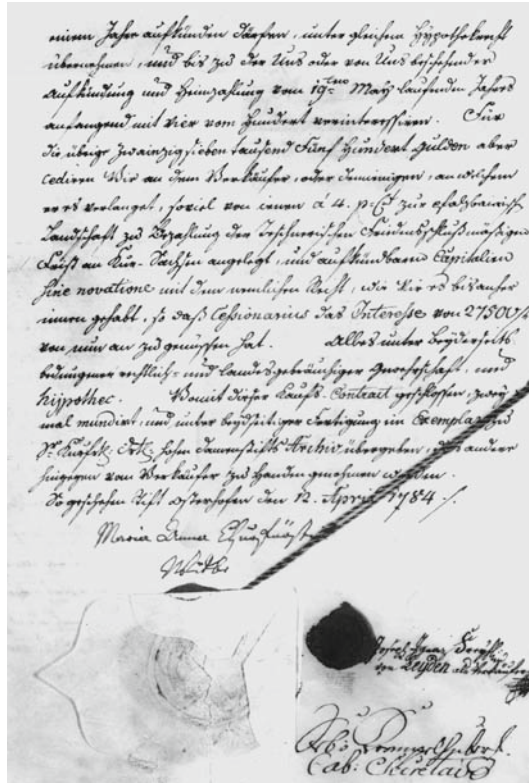 einem Jahr aufkünden därfen, unter gleichem Hypothekrecht
übernehmen, und bis zu der Uns oder von Uns beschehender
Aufkündung und Heimzahlung vom 19ten May laufenden Jahrs
anfangend mit vier vom Hundert verinteressiren. Für
die übrige zwainzig sieben tausend Fünf Hundert Gulden aber
cediren Wir an dem Verkäufer, oder demienigen, an welchem
er es verlanget, soviel von ienen à 4. p. Ct zur
Landschaft zu Bezahlung der Teschnerischen Friedensschlußmäsigen
Frist an Kur-Sachsen angelegt, und aufkündbaren Capitalien
sine novatione mit dem nemlichen Recht, wie Wir es bis anher
innen gehabt, so daß Cessionarius das Interesse von 27500 f
von nun an zu genüssen hat. Alles unter beyderseits
bedungener rechtlich- und landesgebräuchiger Gwehrschaft, und
hÿppothec. Womit dieser Kaufs-Contract geschlossen, zwey
mal mundirt, und unter beydseitiger Fertigung ein Exemplar zu
Sr Kurfrtl: Drtl: hohen Damenstifts Archiv übergeben, das andere
hingegen vom Verkäufer zu Handen genohmen worden.
So geschehen Stift Osterhofen den 12. April 1784 ./.
Maria Anna Churfürstin
Witbe
Joseph Ignaz
von Leyden als Verkäufer
Cab: Secretaire